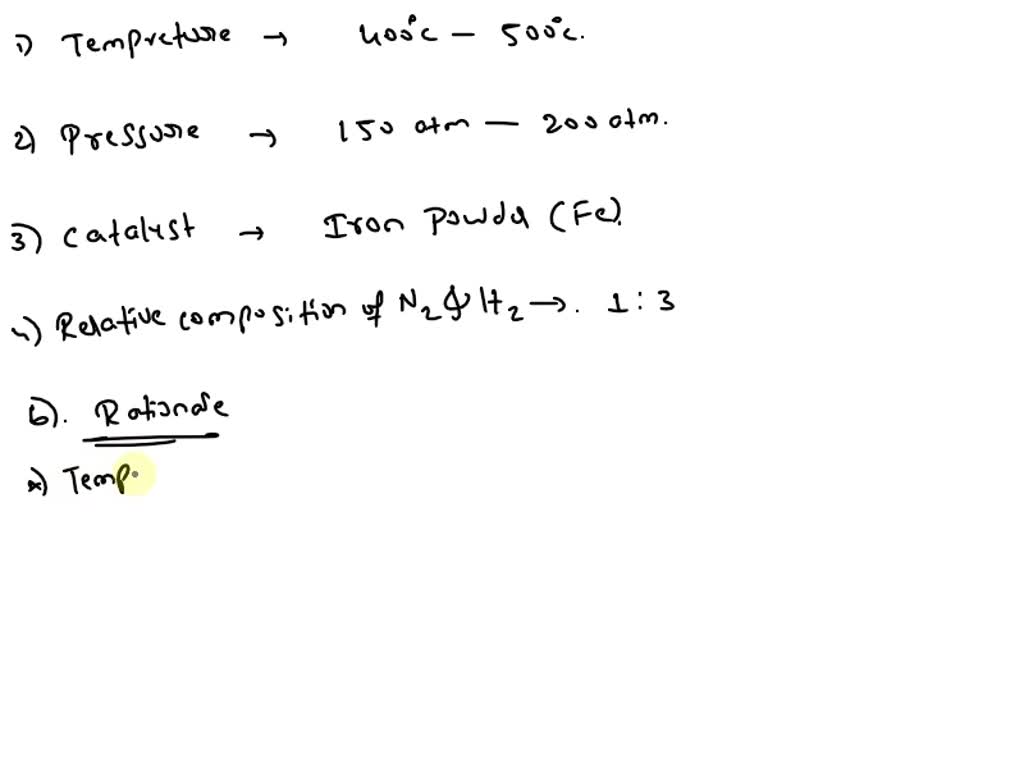 1) Tempreture → 400°C – 500°C.
2) Pressure → 150 atm – 200 atm.
3) Catalyst → Iron Powder (Fe).
4) Relative composition of N2 & H2 →. 1 : 3
b). Rationale
*) Temp